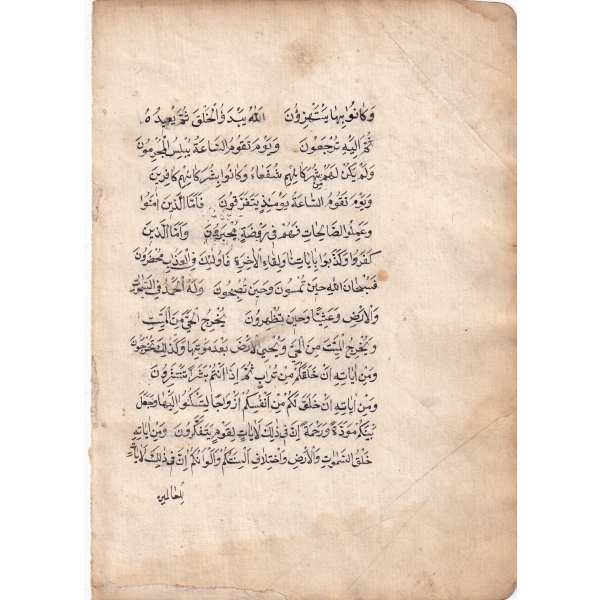 وَكَانُوا بِهَا يَسْتَهْزِؤُنَ اَللّٰهُ يَبْدَؤُا الْخَلْقَ ثُمَّ يُعِيدُهُ
ثُمَّ اِلَيْهِ تُرْجَعُونَ وَيَوْمَ تَقُومُ السَّاعَةُ يُبْلِسُ الْمُجْرِمُونَ
وَلَمْ يَكُنْ لَهُمْ مِنْ شُرَكَائِهِمْ شُفَعَاءُ وَكَانُوا بِشُرَكَائِهِمْ كَافِرِينَ
وَيَوْمَ تَقُومُ السَّاعَةُ يَوْمَئِذٍ يَتَفَرَّقُونَ فَاَمَّا الَّذِينَ اٰمَنُوا
وَعَمِلُوا الصَّالِحَاتِ فَهُمْ فِي رَوْضَةٍ يُحْبَرُونَ وَاَمَّا الَّذِينَ
كَفَرُوا وَكَذَّبُوا بِاٰيَاتِنَا وَلِقَاءِ الْاٰخِرَةِ فَاُولٰئِكَ فِي الْعَذَابِ مُحْضَرُونَ
فَسُبْحَانَ اللّٰهِ حِينَ تُمْسُونَ وَحِينَ تُصْبِحُونَ وَلَهُ الْحَمْدُ فِي السَّمٰوَاتِ
وَالْاَرْضِ وَعَشِيًّا وَحِينَ تُظْهِرُونَ يُخْرِجُ الْحَيَّ مِنَ الْمَيِّتِ
وَيُخْرِجُ الْمَيِّتَ مِنَ الْحَيِّ وَيُحْيِي الْاَرْضَ بَعْدَ مَوْتِهَا وَكَذٰلِكَ تُخْرَجُونَ
وَمِنْ اٰيَاتِهِ اَنْ خَلَقَكُمْ مِنْ تُرَابٍ ثُمَّ اِذَا اَنْتُمْ بَشَرٌ تَنْتَشِرُونَ
وَمِنْ اٰيَاتِهِ اَنْ خَلَقَ لَكُمْ مِنْ اَنْفُسِكُمْ اَزْوَاجًا لِتَسْكُنُوا اِلَيْهَا وَجَعَلَ
بَيْنَكُمْ مَوَدَّةً وَرَحْمَةً اِنَّ فِي ذٰلِكَ لَاٰيَاتٍ لِقَوْمٍ يَتَفَكَّرُونَ وَمِنْ اٰيَاتِهِ
خَلْقُ السَّمٰوَاتِ وَالْاَرْضِ وَاخْتِلَافُ اَلْسِنَتِكُمْ وَاَلْوَانِكُمْ اِنَّ فِي ذٰلِكَ لَاٰيَاتٍ
لِلْعَالِمِينَ